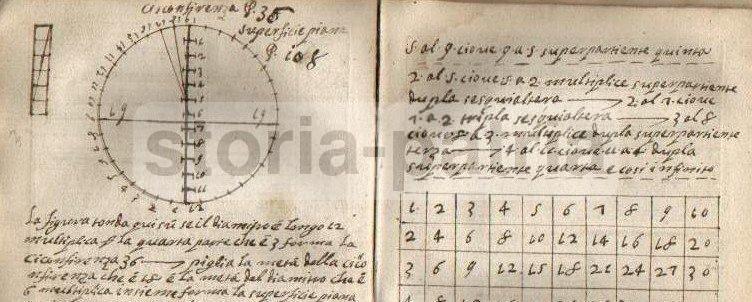 Circonfirenza P. 36
superficie piana
P. 108
1
2
3
4
5
6
7
8
9
10
11
12
19 19
la figura tonda qui sù se il diamitro è longo 12
multiplica la quarta parte che è 3 forma la
circonfirenza 36 piglia la metà della circo
nfirenza che è 18 e la metà del diamitro che è
6 multiplica insieme forma la superficie piana
5 al 9 cioue 9 a 5 superpartiente quinta
2 al 5 cioue 5 a 2 multiplice superpartiente
dupla sesquialtera 2 al 7 cioue
7 a 2 tripla sesquialtera 3 al 8
cioue 8 a 3 multiplice dupla superpartiente
terza 4 al dupla
superpartiente quarta e cosi infinito
1 2 3 4 5 6 7 8 9 10
2 4 6 8 10 12 14 16 18 20
3 6 9 12 15 18 21 24 27 30
storia-p